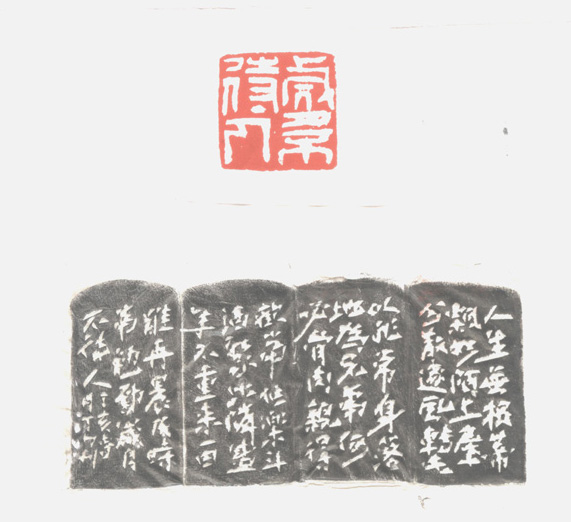 歲月不
待人
人生無根蒂
飄如陌上塵
分散逐風轉此
已非常身落
地為兄弟何
必骨肉親得
歡當作樂斗
酒聚比隣盛
年不重來一日
難再晨及時
當勉勵歲月
不待人丁亥